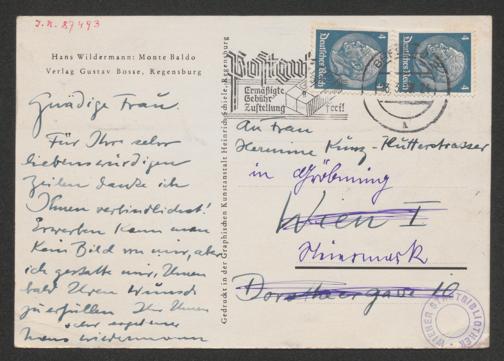 J.N. 87493
Hans Wildermann: Monte Baldo
Verlag Gustav Bosse, Regensburg
Gnädige Frau.
Für Ihre sehr
liebenswürdigen
Zeilen danke ich
Ihnen verbindlichst!
Erwerben kann man
kein Bild von mir, aber
ich gestatte mir, Ihnen
bald Ihren Wunsch
zu erfüllen Ihr Ihnen
sehr ergebener
Hans Wildermann
Gedruckt in der Graphischen Kunstanstalt Heinrich Schiele, Regensburg
Postgut
Ermäßigte
Gebühr
Zustellung frei!
4 4
Deutsches Reich
Deutsches Reich
An Frau
Hermine Kunz-Hutterstrasser
in Gröbming
Wien I
Steiermark
Dorotheergasse 10
WIENER STADTBIBLIOTHEK